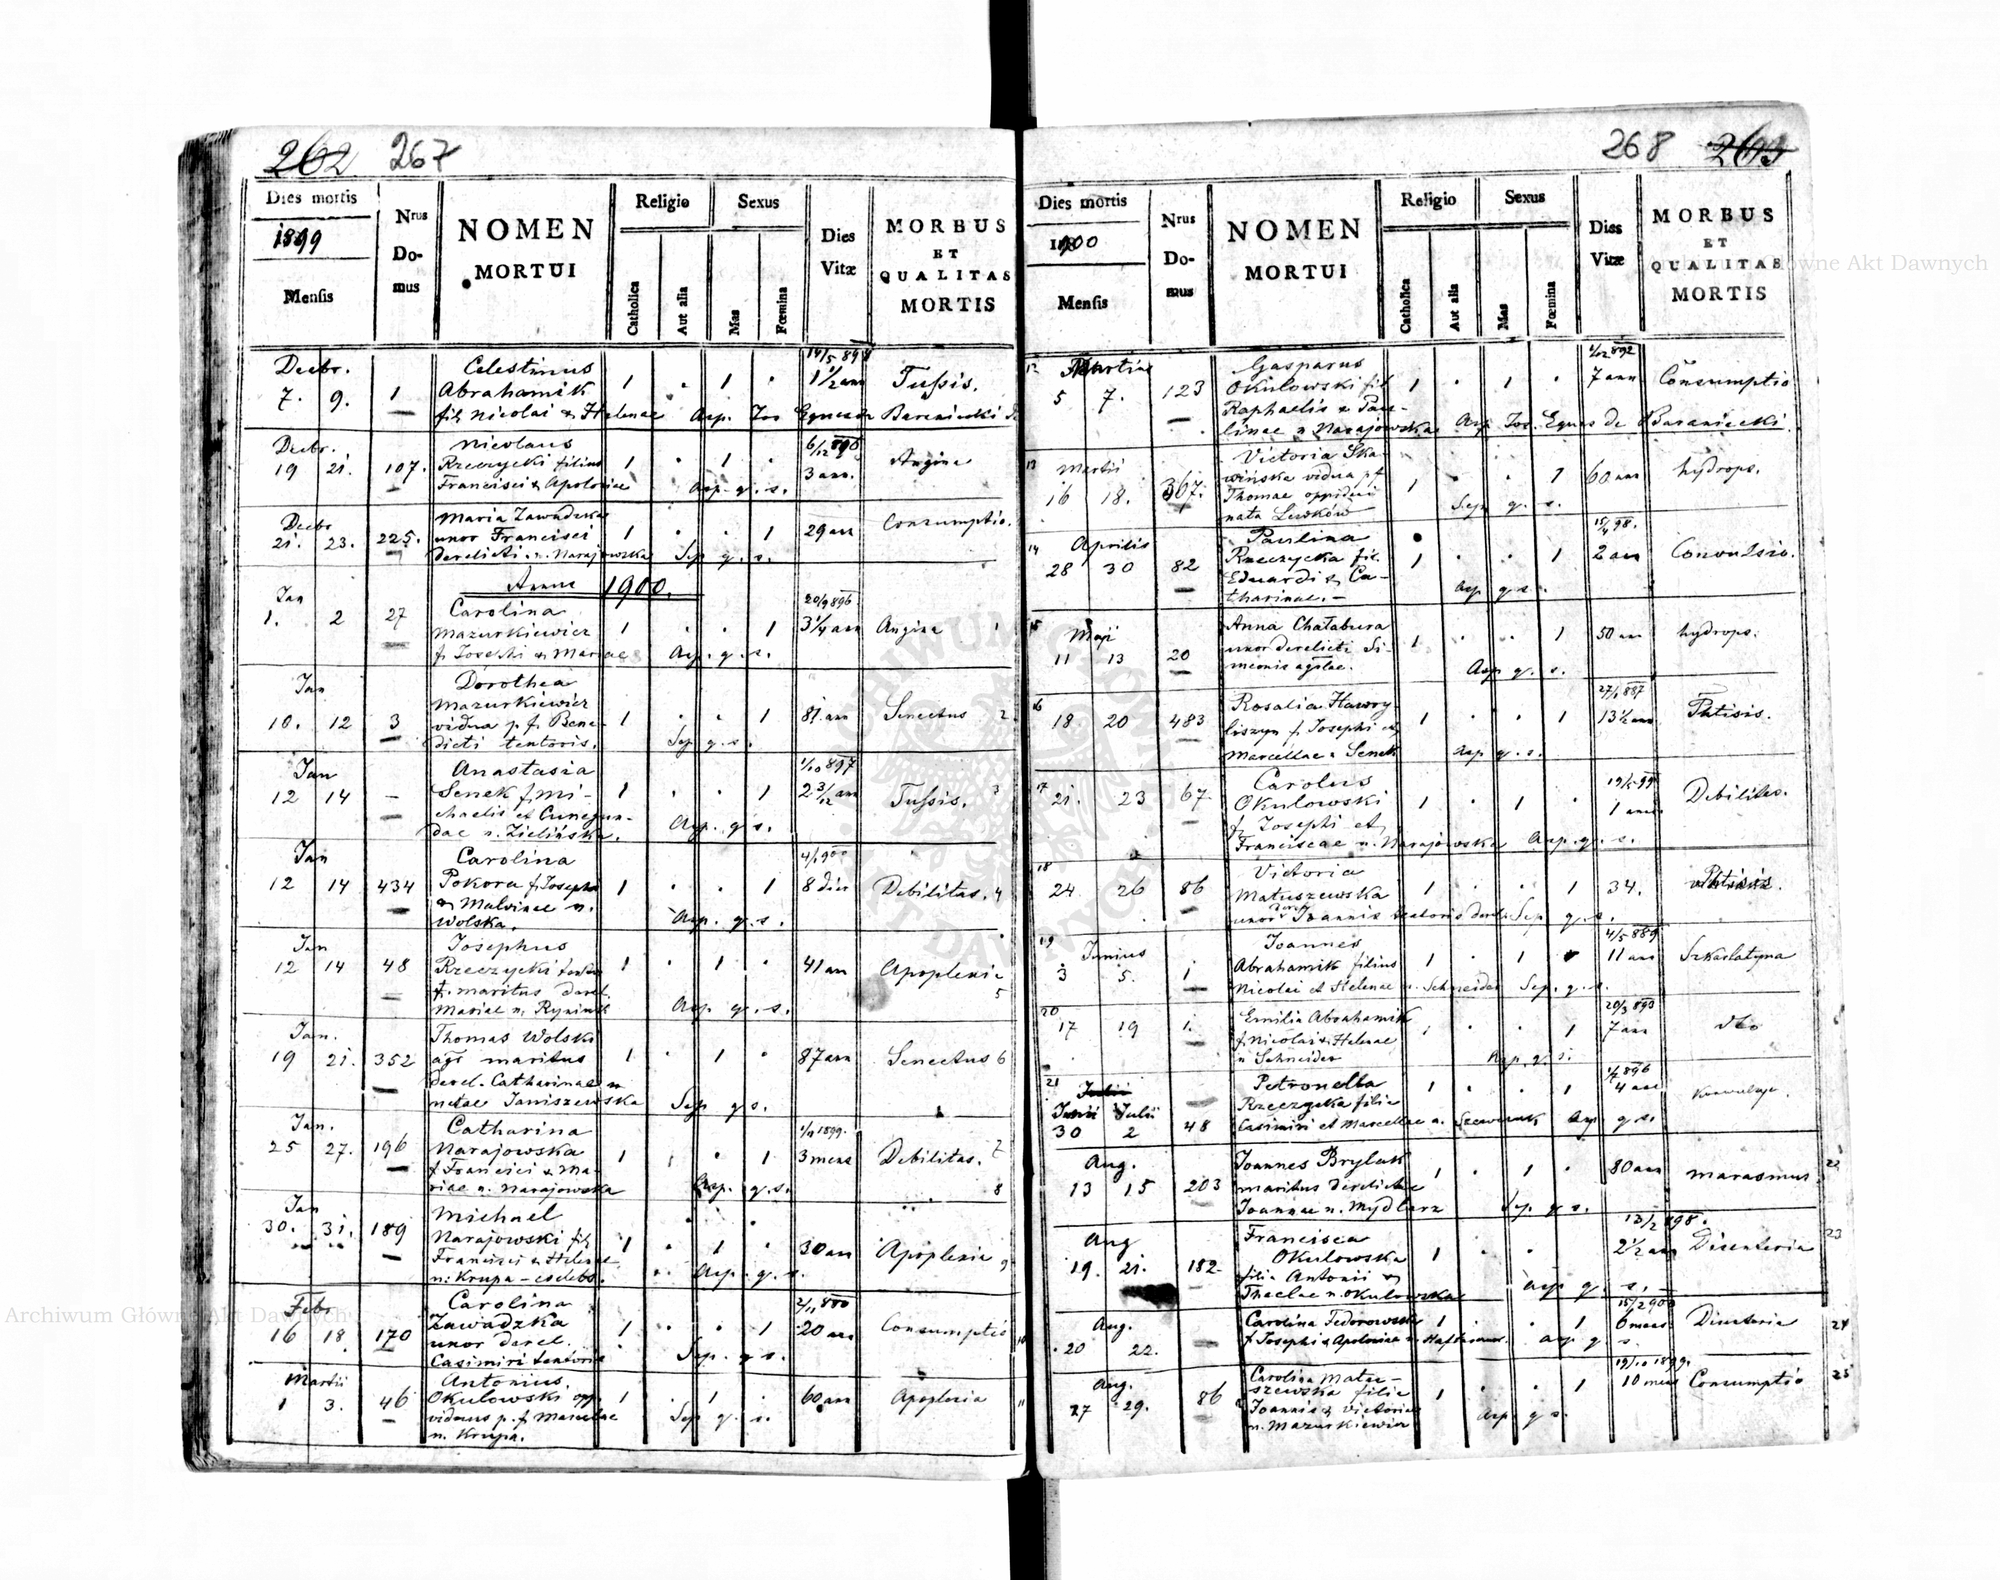 262 267
Dies mortis
1899
Mensis
Nrus
Do-
mus
NOMEN
MORTUI
Religio
Catholica
Aut alia
Sexus
Mas
Fœmina
Dies
Vitæ
MORBUS
ET
QUALITAS
MORTIS
Decbr.
7. 9. 1
Celestinus
Abrahamik
fil. Nicolai & Helenae
1 . 1 .
14/5 898
1 1/2 ann
Tussis.
Asp. Jos Eques de Baraniecki
Decbr.
19 21. 107.
Nicolaus
Rzeczycki filius
Francisci & Apolonia
1 . 1 .
6/12 896
3 ann.
Angina
Asp. g. s.
Decbr
21. 23. 225.
Maria Zawadzka
uxor Francisci
derelicti n. Narajowska
1 . . 1
29 ann
Consumptio.
Sep g. s.
Anno 1900.
Jan
1. 2 27
Carolina
Mazurkiewicz
f. Josephi & Mariae
1 . . 1
20/9 896
3 1/4 ann
Angina 1
Asp. g. s.
Jan
10. 12 3
Dorothea
Mazurkiewicz
vidua p. f. Bene-
dicti textoris.
1 . . 1
81. ann
Senectus 2
Sep g. s.
Jan
12 14 —
Anastasia
Senek f. Mi-
chaelis et Cunegun-
dae n. Zielińska.
1 . . 1
1/10 897
2 3/12 ann
Tussis. 3
Asp. g. s.
Jan
12 14 434
Carolina
Pokora f. Josephi
& Malvinae n.
Wolska.
1 . . 1
4/1 900
8 dier
Debilitas. 4
Asp. g. s.
Jan
12 14 48
Josephus
Rzeczycki textor
f. maritus derel.
Mariae n. Ryniuk
1 . 1 .
41 an
Apoplexia
5
Asp. g. s.
Jan.
19 21. 352
Thomas Wolski
agr maritus
derel. Catharinae n
natae Janiszewska
1 . 1 .
87 ann
Senectus 6
Sep g s.
Jan.
25 27. 196
Catharina
Narajowska
f. Francisci & Ma-
riae n. Narajowska
1 . . 1
1/11 1899.
3 mens
Debilitas. 7
Asp. g. s. 8
Jan
30. 31. 189
Michael
Narajowski fil.
Francisci & Helenae
n. Krupa – caelebs.
1 . 1 .
30 ann
Apoplexia 9
Asp. g. s.
Febr
16 18. 170
Carolina
Zawadzka
uxor derel.
Casimiri textoris
1 . . 1
2/11 880
20 ann
Consumptio 10
Sep. g s.
Martii
1 3. 46
Antonius
Okulowski opp.
viduus p. f. Marcellae
n. Krupa.
1 . 1 .
60 ann
Apoplexia 11
Sep g. s.
268 263
Dies mortis
1900
Mensis
Nrus
Do-
mus
NOMEN
MORTUI
Religio
Catholica
Aut alia
Sexus
Mas
Fœmina
Dies
Vitæ
MORBUS
ET
QUALITAS
MORTIS
12 Martius
5 7. 123
Gasparus
Okulowski fil
Raphaelis & Pau-
linae n Narajowska
1 . . 1
1/12 892
7 ann
Consumptio
Asp Jos. Eques de Baraniecki.
13 Martii
16 18. 367.
Victoria Ska-
wińska vidua p f
Thomae oppidani
nata Leśków
1 . . 1
60 ann
hydrops.
Sep g. s.
14 Aprilis
28 30 82
Paulina
Rzeczycka fil.
Eduardi & Ca-
tharinae. –
1 . . 1
15/4 98.
2 ann
Convulsio.
Asp g. s.
15 Maji
11 13 20
Anna Chałabura
uxor derelicti Si-
meonis agrlae.
1 . . 1
50 an
hydrops.
Asp g. s.
16
18 20 483
Rosalia Hawry-
liszyn f. Josephi et
Marcellae n Senek
1 . . 1
27/1 887
13 1/2 ann
Phtisis.
Asp g. s.
17
21. 23 67
Carolus
Okulowski
f. Josephi et
Franciscae n. Narajowska
1 . 1 .
19/5 99
1 ann
Debilitas.
Asp. g. s.
18
24 26 86
Victoria
Matuszewska
uxor Joannis textoris derel.
1 . . 1
34.
Phtisis.
Sep g. s.
19 Junius
3 5. 1
Joannes
Abrahamik filius
Nicolai et Helenae n. Schneider
1 . 1 .
4/5 889
11 ann
Szkarlatyna
Sep. g. s.
20
17 19 1.
Emilia Abrahamik
f. Nicolai & Helenae
n Schneider
1 . . 1
20/3 893
7 ann
dto
Asp. g. s.
21 Junii Julii
30 2 48
Petronella
Rzeczycka filia
Casimiri et Marcellae n. Szewczuk
1 . . 1
1/7 896
4 ann
Konwulsje.
Asp g s.
Aug.
13 15 203
Joannes Brylak
maritus derelictae
Joannae n. Mydlarz
1 . 1 .
80 ann
Marasmus 22
Sep g s.
Aug
19. 21. 182.
Francisca
Okulowska
filia Antonii &
Theclae n. Okulowska
1 . .
12/2 898.
2 1/2 ann
Disenteria 23
Asp g. s.
Aug.
20 22.
Carolina Fedorowska
f. Josephi & Apoloniae
1 . . 1
15/2 900
6 mens
Disenteria 24
Asp g s.
Aug.
27 29. 86
Carolina Matu-
szewska filia
Joannis & Victoria
n. Mazurkiewicz
1 . . 1
19/10 1899.
10 mens
Consumptio 25
Asp g s.
Archiwum Główne Akt Dawnych
Archiwum Główne Akt Dawnych
ARCHIWUM GŁÓWNE AKT DAWNYCH